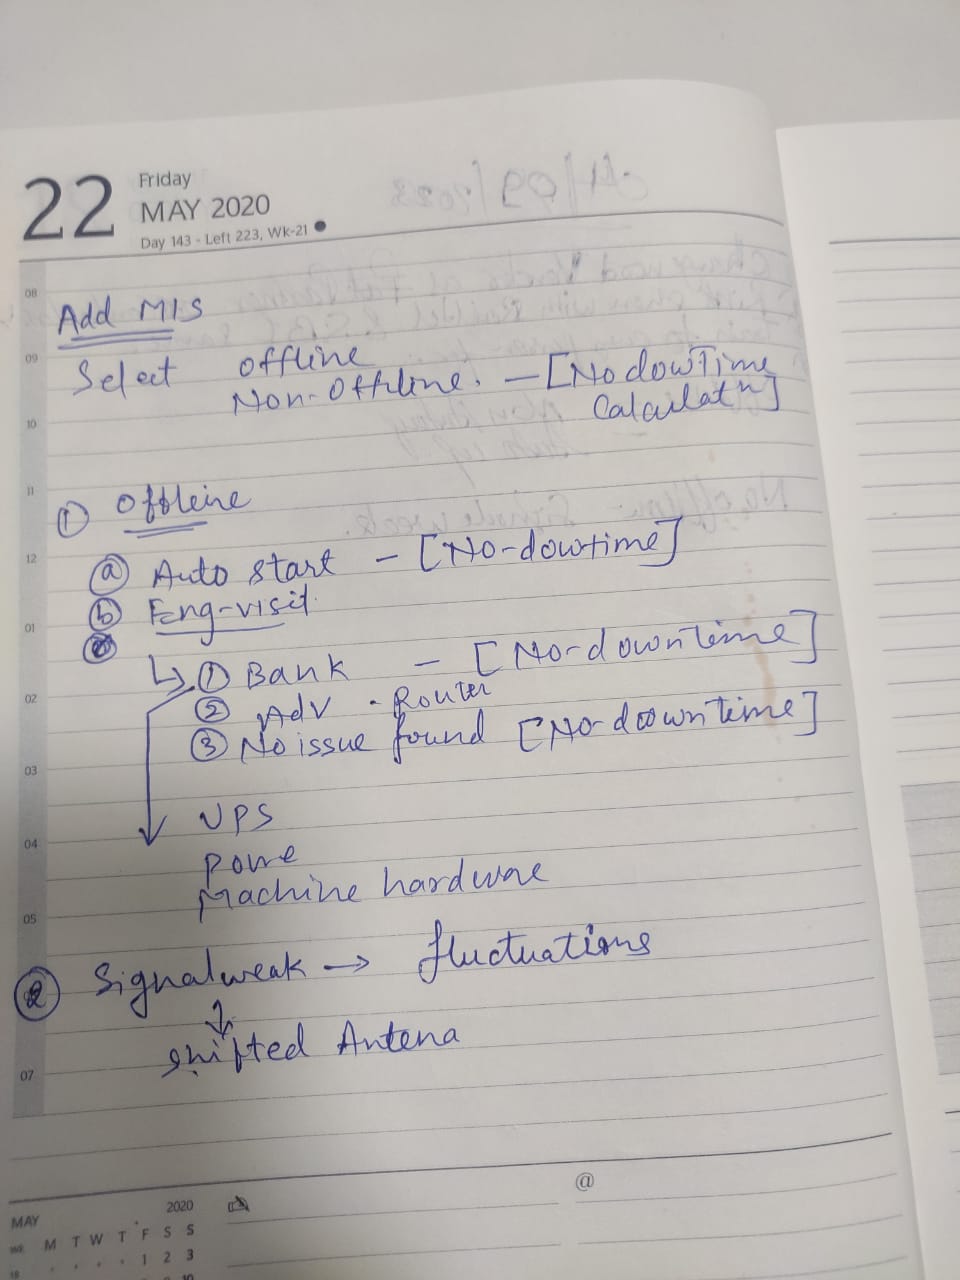 22
Friday
MAY 2020
Day 143 - Left 223, Wk-21
08
Add MIS
09
Select Offline
Non-Offline. — [No dowTime
Calculatn]
10
11
① Offleine
12
(a) Auto start - [No-dowtime]
(b) Eng-visit
01
↳ ① Bank — [No-downtime]
02
② Adv - Router
③ No issue found [No-doowntime]
03
UPS
04
Powe
Machine hardware
05
② Signalweak → fluctuations
shifted Antena
07
@
MAY 2020
WK M T W T F S S
1 2 3
18
10